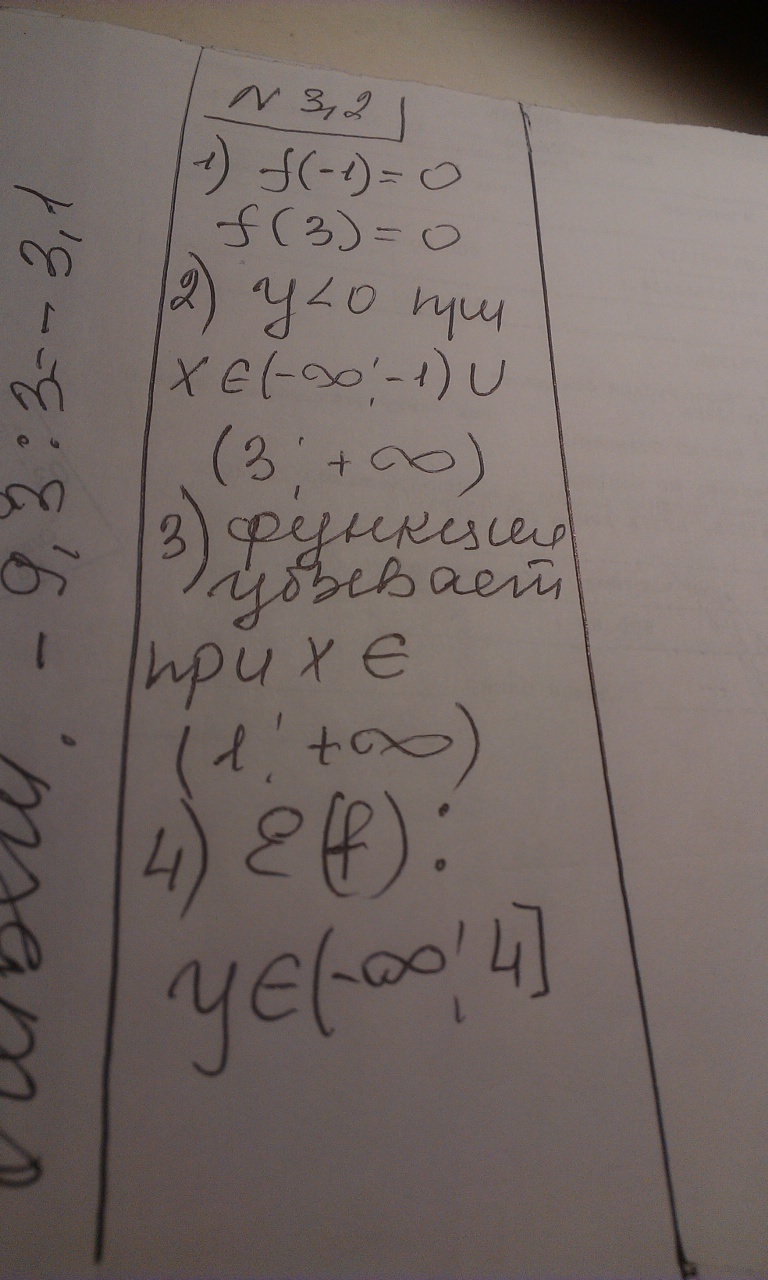 N 3,2
1) f(-1)=0
f(3)=0
2) y<0 при
x∈(-∞;-1)∪
(3; +∞)
3) функция
убывает
при x ∈
(1; +∞)
4) E(f):
y∈(-∞; 4]
- 9,3:3=-3,1